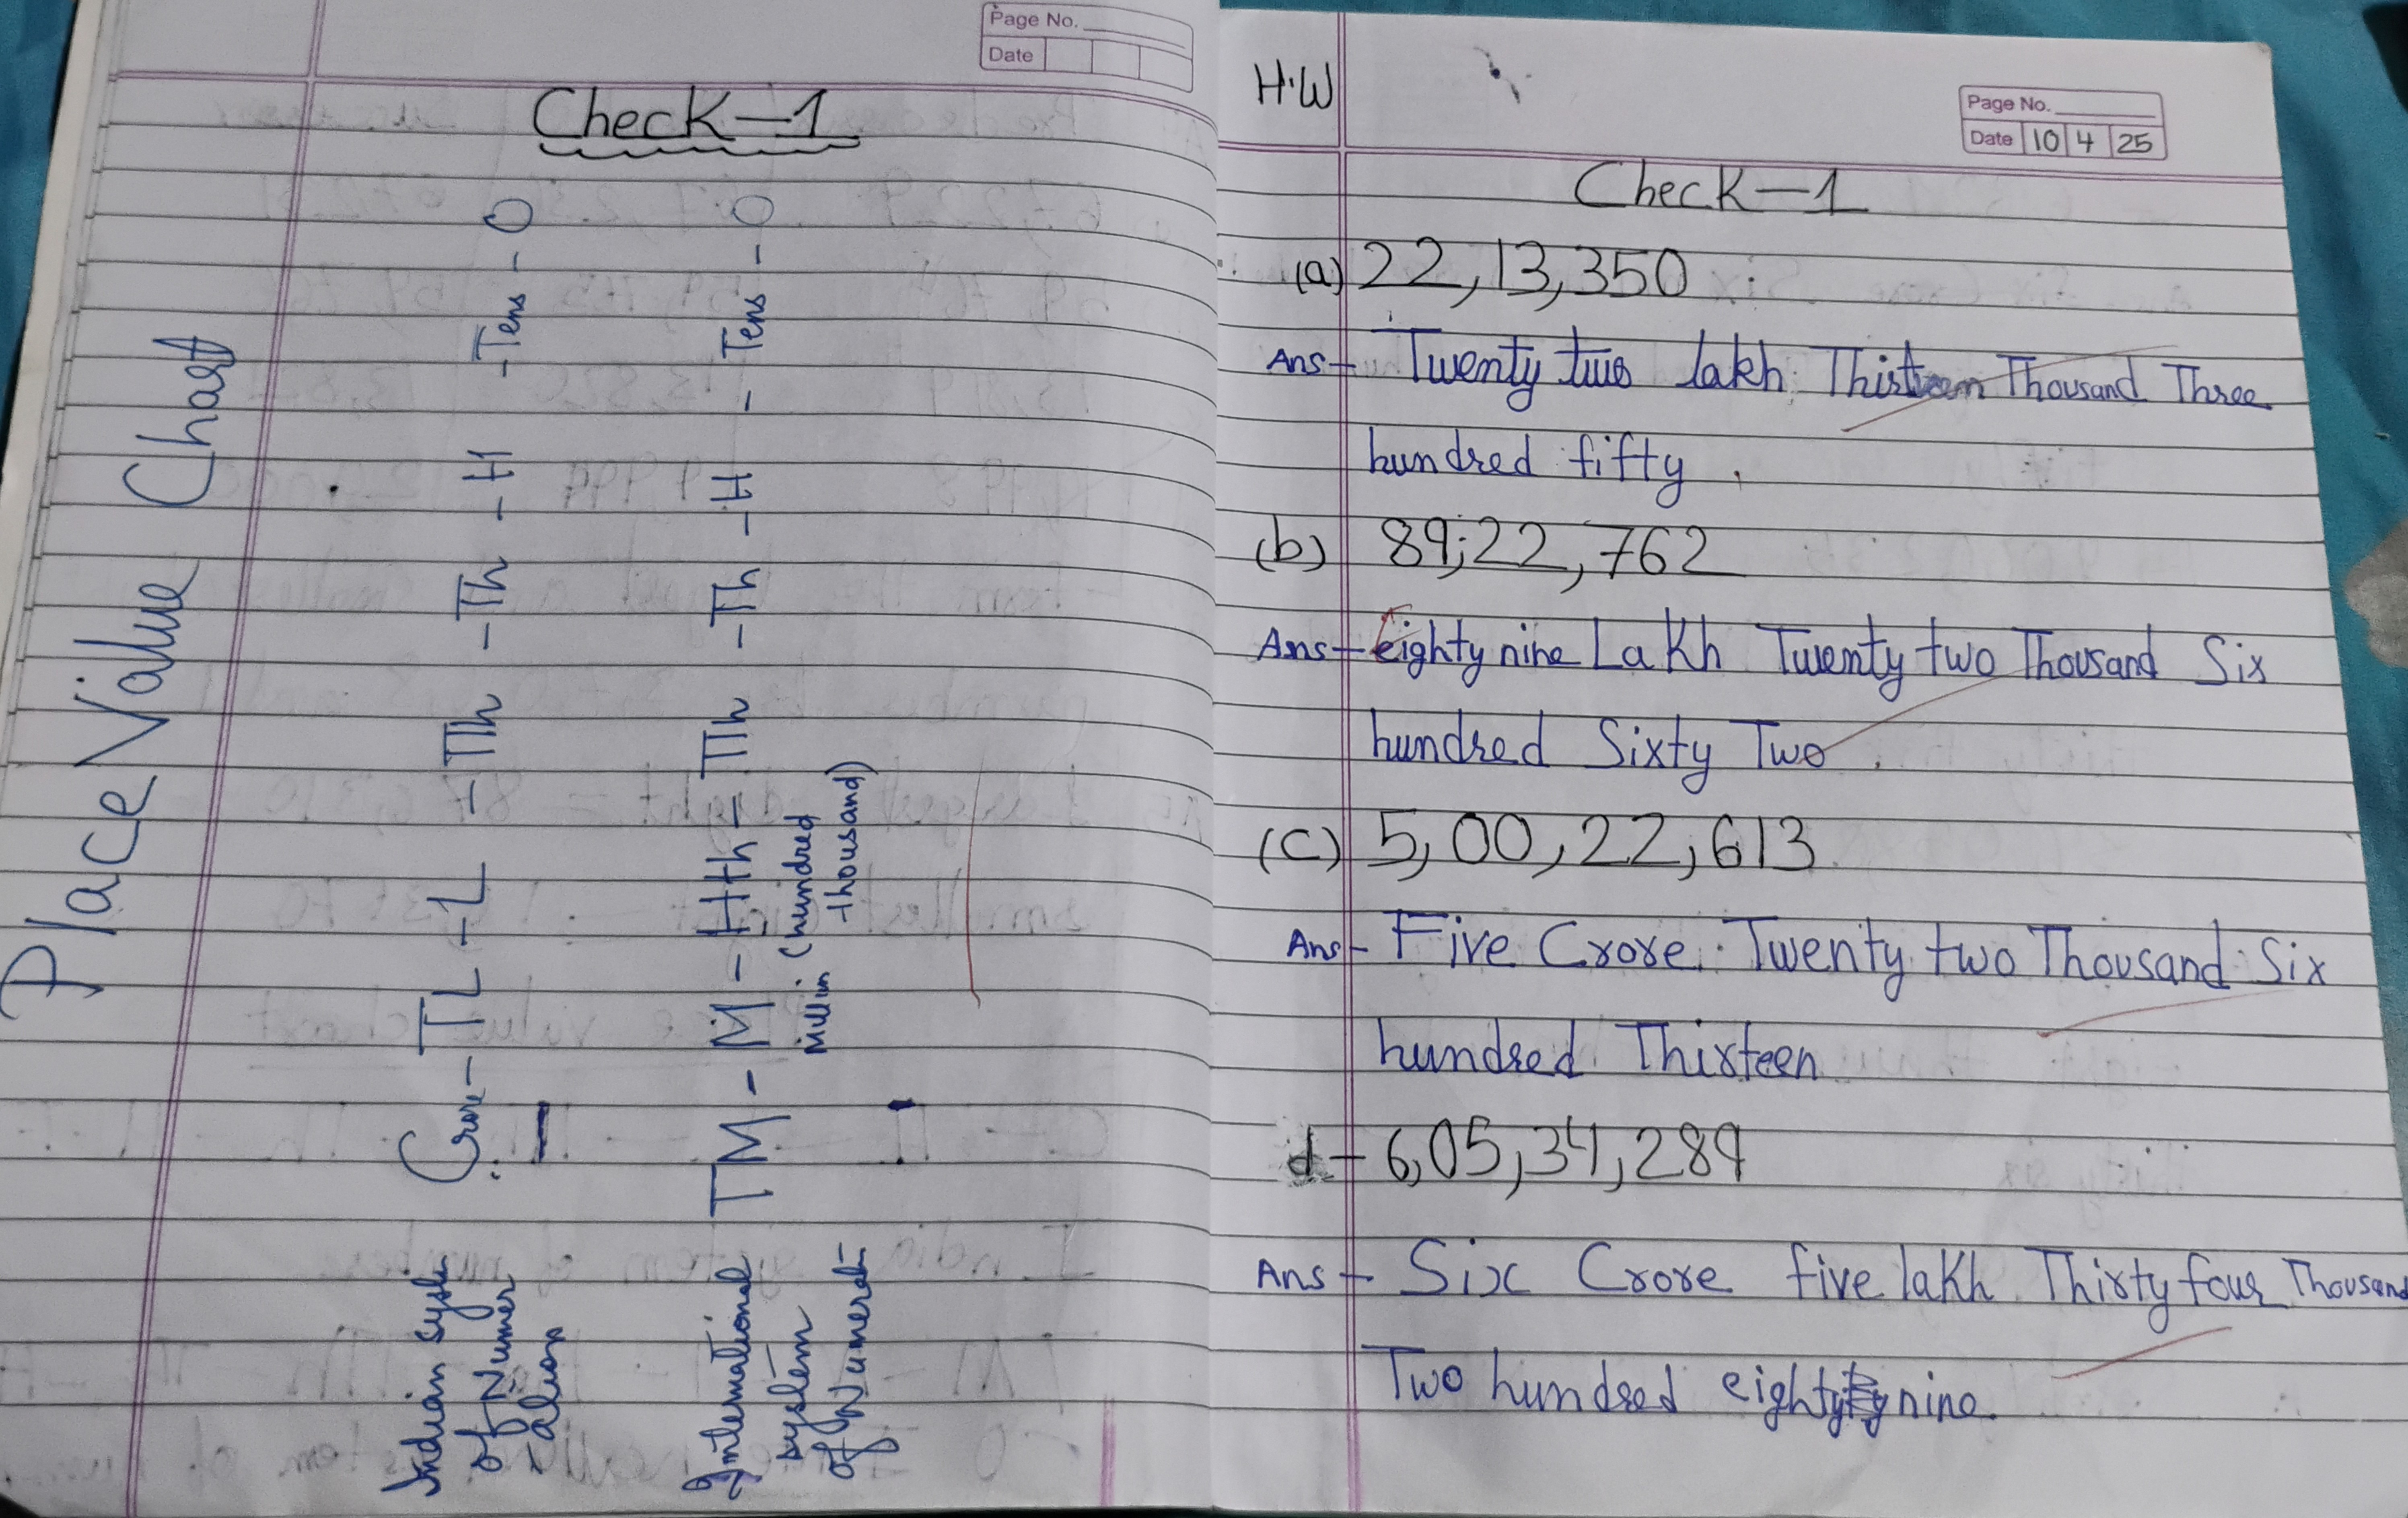 Page No.
Date
Check-1
Place Value Chart
Indian System
of Numer
-ation
Crore - TL - L - TTh - Th - H - Tens - O
International
system
of Numerat-
TM - M - Hth - TTh - Th - H - Tens - O
Millin (hundred
thousand)
H.W
Page No.
Date 10 4 25
Check-1
(a) 22,13,350
Ans- Twenty two lakh Thirteen Thousand Three
hundred fifty.
(b) 89,22,762
Ans- eighty nine Lakh Twenty two Thousand Six
hundred Sixty Two.
(C) 5,00,22,613
Ans- Five Crore Twenty two Thousand Six
hundred Thirteen
d- 6,05,34,289
Ans- Six Crore five lakh Thirty four Thousand
Two hundred eighty nine.